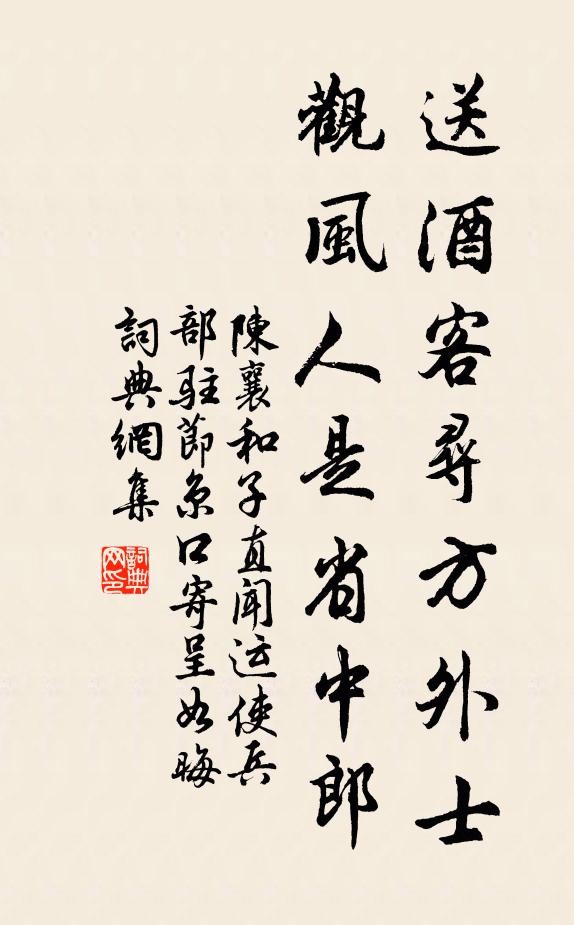 送酒客尋方外士
觀風人是省中郎
陳襄和子直聞运使兵
部駐節京口寄呈如晦
詞典網集
詞典网印